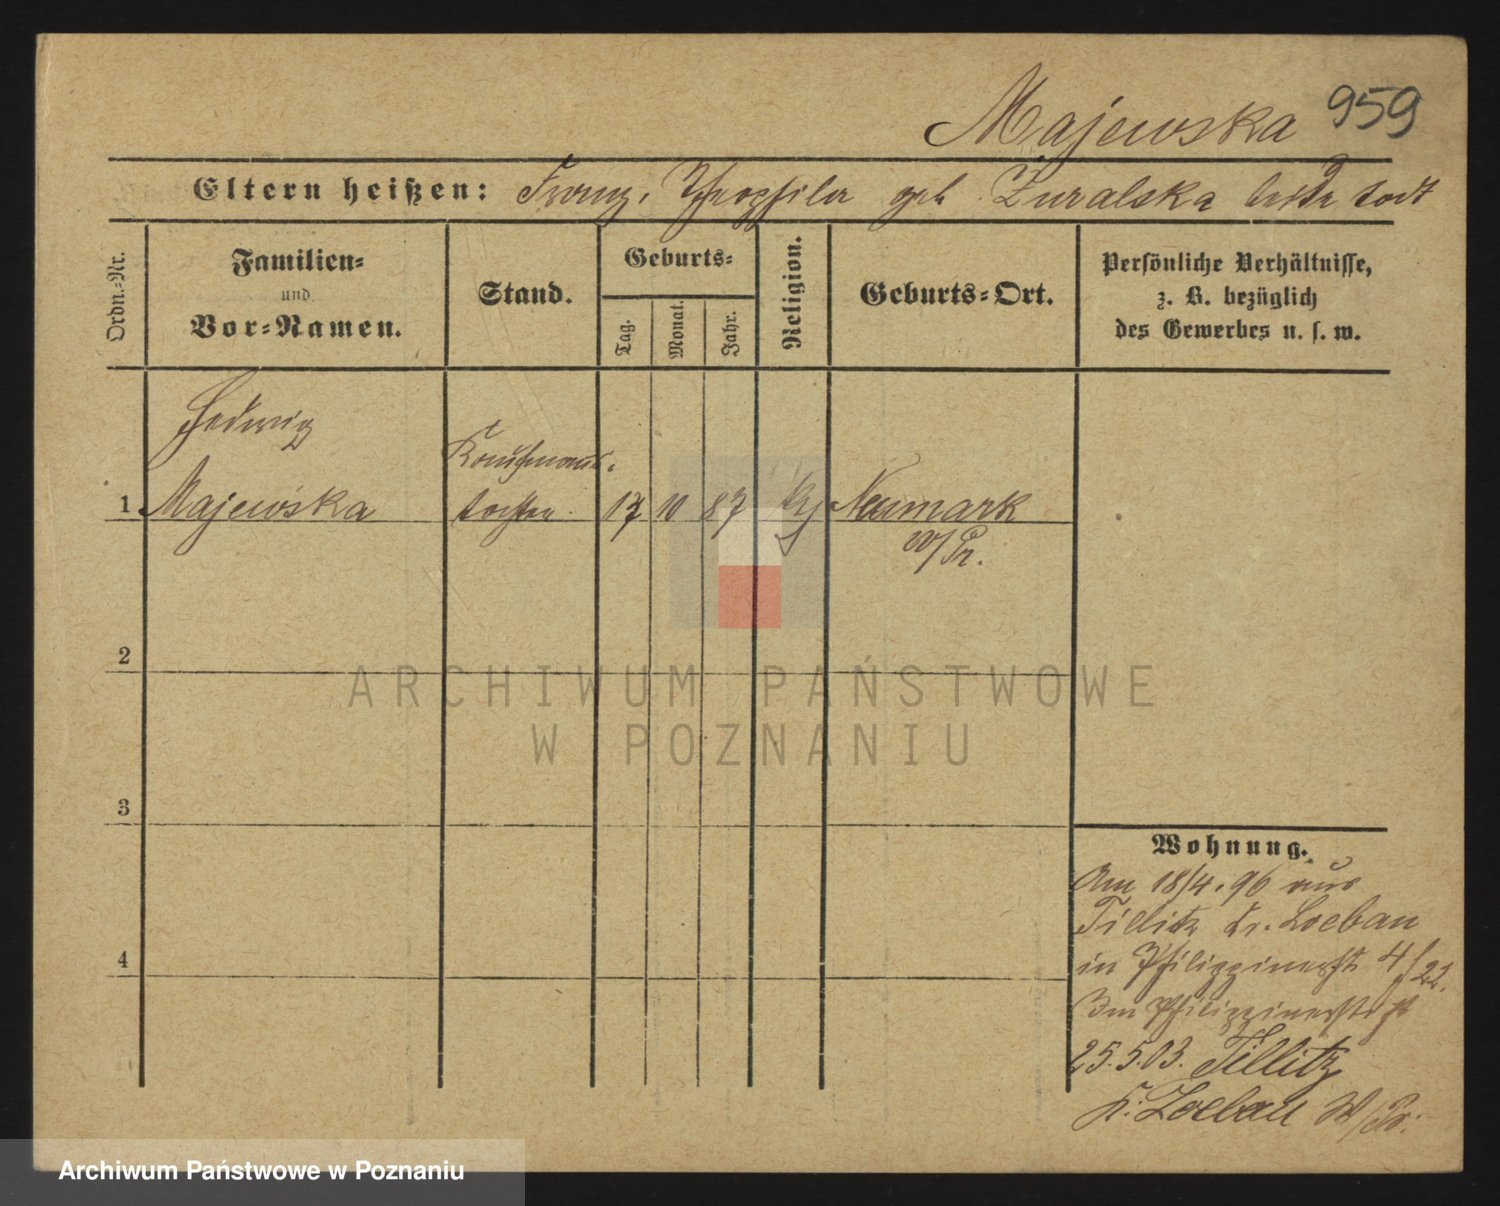 Majewska 959
Eltern heißen: Franz, Theophila geb Zuralska beide todt
Ordn.-Nr.
Familien-
und
Vor-Namen.
Stand.
Geburts-
Tag.
Monat.
Jahr.
Religion.
Geburts-Ort.
Persönliche Verhältnisse,
z. B. bezüglich
des Gewerbes u. s. w.
Hedwig
Kaufmanns-
1 Majewska tochter 17 10 87 Neumark
W/Pr.
2
ARCHIWUM PAŃSTWOWE
W POZNANIU
3
Wohnung.
Am 18/4. 96 aus
Tillitz Kr. Loebau
in Philippinerstr 4/22.
Philippinerstr
4
25.5.03. Tillitz
K. Loebau W/Pr.
Archiwum Państwowe w Poznaniu